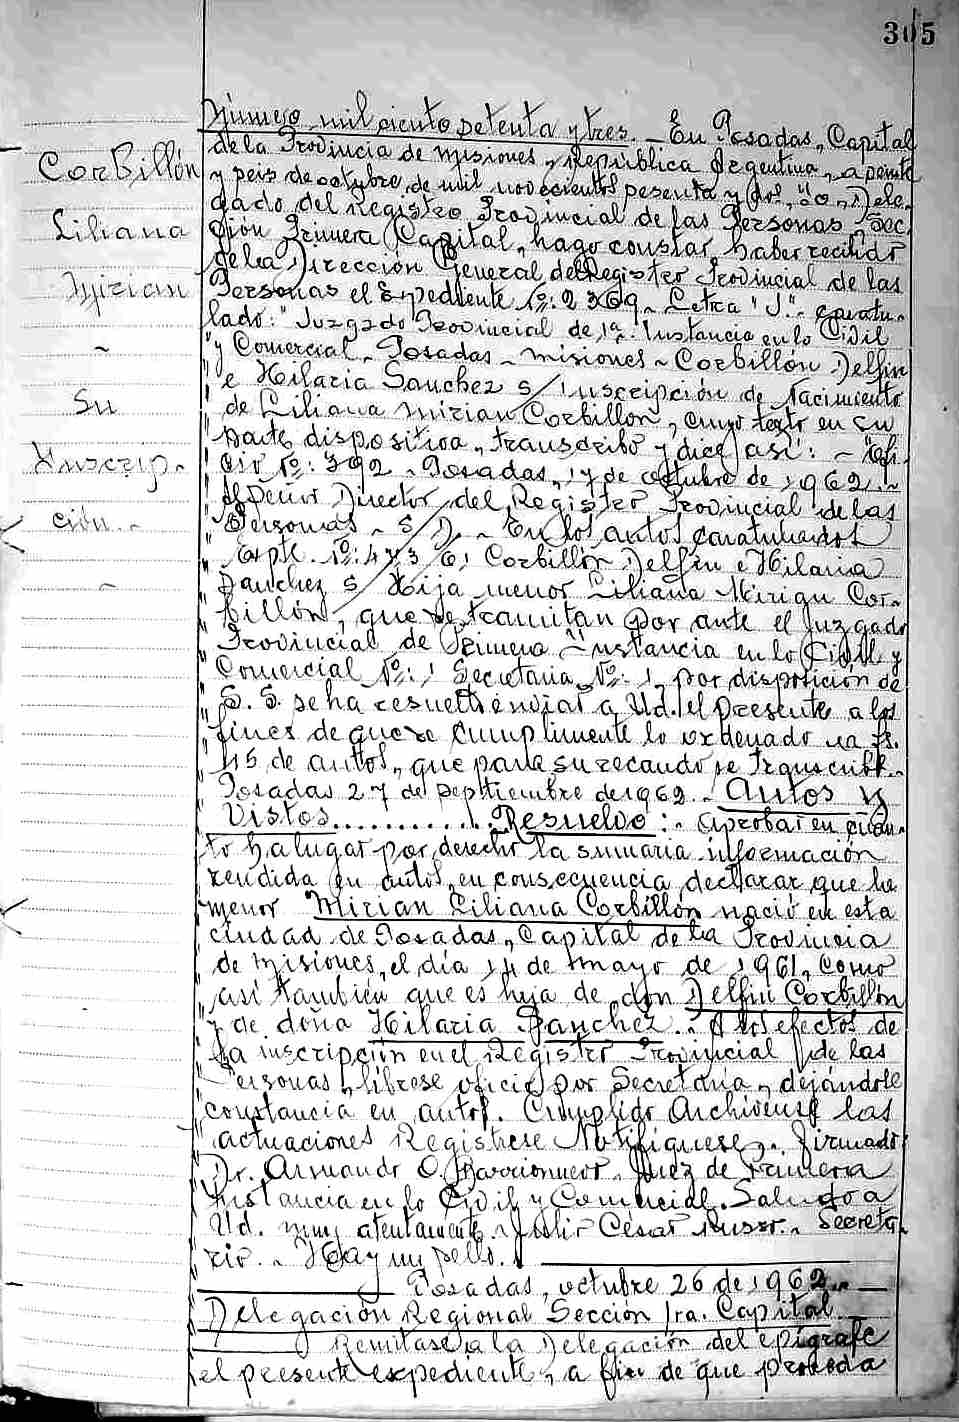 305
Corbillón
Liliana
Mirian
~
Su
Inscrip-
ción.-
Número mil ciento setenta y tres. - En Posadas, Capital
de la Provincia de Misiones, República Argentina, a veinte
y seis de octubre de mil novecientos sesenta y dos, yo, Dele-
gado del Registro Provincial de las Personas, Sec-
ción Primera Capital, hago constar haber recibido
de la Dirección General del Registro Provincial de las
Personas el Expediente Nº: 2369 - Letra "J". - caratu-
lado: "Juzgado Provincial de 1ª. Instancia en lo Civil
" y Comercial - Posadas - Misiones - Corbillón Delfin
" e Hilaria Sanchez s/ Inscripción de Nacimiento
" de Liliana Mirian Corbillón, cuyo texto en su
" parte dispositiva, transcribo y dice así: - "Ofi-
" cio Nº: 392 - Posadas, 17 de octubre de 1962.-
" al Señor Director del Registro Provincial de las
" Personas - S/D. - En los autos caratulados
" Expte. Nº: 473/61 Corbillón Delfin e Hilaria
" Sanchez s/ Hija menor Liliana Mirian Cor-
" billón, que se tramitan por ante el Juzgado
" Provincial de Primera Instancia en lo Civil y
" Comercial Nº: 1 Secretaria Nº: 1, por disposición de
" S. S. se ha resuelto enviar a Ud. el presente a los
" fines de que se cumplimente lo ordenado a fs.
" 45 de autos, que para su recaudo se transcribe.-
" Posadas 27 de septiembre de 1962. - Autos y
" Vistos............Resuelvo: - aprobar en cuan-
" to ha lugar por derecho la sumaria información
" rendida en autos, en consecuencia declarar que la
" menor Mirian Liliana Corbillón nació en esta
" ciudad de Posadas, Capital de la Provincia
" de Misiones, el día 14 de mayo de 1961, como
" así también que es hija de don Delfin Corbillón
" y de doña Hilaria Sanchez. - A los efectos de
" la inscripción en el Registro Provincial de las
" Personas, líbrese oficio por Secretaría, dejándose
" constancia en autos. Cumplido Archívense las
" actuaciones Regístrese Notifíquese. - firmado
" Dr. Armando O. Juez de Primera
" Instancia en lo Civil y Comercial. Saludo a
" Ud. muy atentamente - Julio César Russo. - Secreta-
" rio. - Hay un sello.
Posadas, octubre 26 de 1962.-
Delegación Regional Sección 1ra. Capital.
Remítase a la Delegación del epígrafe
el presente expediente, a fin de que proceda